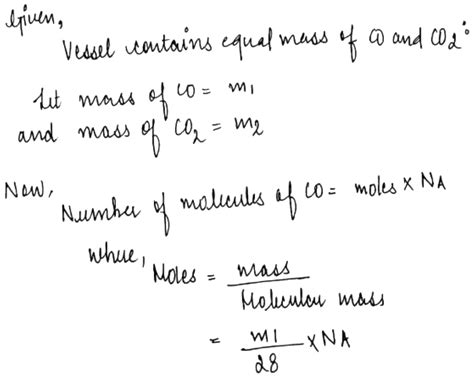 Given,
Vessel contains equal mass of CO and CO₂:
Let mass of CO = m1
and mass of CO₂ = m2
Now,
Number of molecules of CO = moles × NA
where,
Moles = mass / Molecular mass
= m1 / 28 × NA